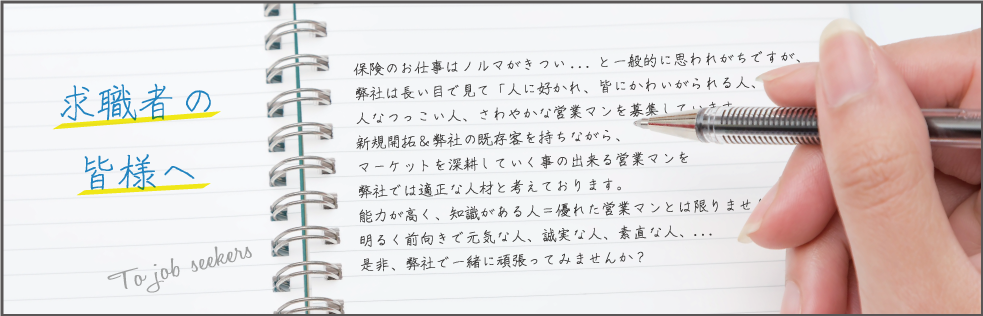 求職者の
皆様へ
To job seekers
保険のお仕事はノルマがきつい...と一般的に思われがちですが、
弊社は長い目で見て「人に好かれ、皆にかわいがられる人、
人なつっこい人、さわやかな営業マンを募集しています
新規開拓&弊社の既存客を持ちながら、
マーケットを深耕していく事の出来る営業マンを
弊社では適正な人材と考えております。
能力が高く、知識がある人=優れた営業マンとは限りません
明るく前向きで元気な人、誠実な人、素直な人、...
是非、弊社で一緒に頑張ってみませんか?